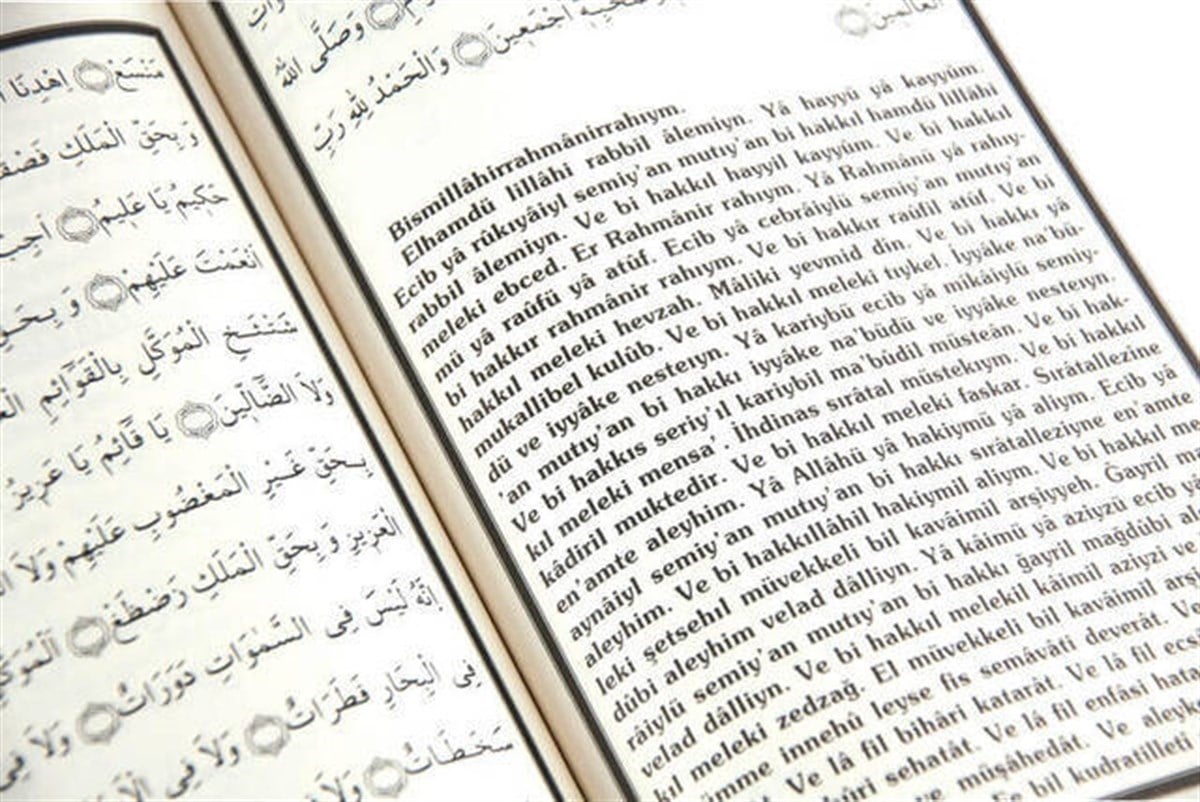 مَنْسَعْ اِهْدِنَا
وَ بِحَقِّ الْمَلَكِ
حَكِيمُ يَا عَلِيمُ اَجِبْ
اَنْعَمْتَ عَلَيْهِمْ وَ
الْمُوَكَّلِ بِالْقَوَائِمِ
وَلاَ الضَّالِّينَ يَا قَائِمُ يَا عَزِيزُ
بِـحَقِّ غَيْرِ الْمَغْضُوبِ عَلَيْهِمْ وَلاَ
الْعَزِيزِ وَ بِحَقِّ الْمَلَكِ رَضْظَغْ
اِنَّهُ لَيْسَ فِى السَّمٰوَاتِ دَوَرَاتٌ وَلاَ فِى
فِى الْبِحَارِ قَطَرَاتٌ وَلاَ فِى
سَخَطَاتٌ وَلاَ
وَصَلَّى اللّٰهُ
اَجْمَعِينَ وَالْحَمْدُ لِلّٰهِ رَبِّ
الْعَالَمِينَ
Bismillâhirrahmânirrahıym.
Elhamdü lillâhi rabbil âlemiyn. Yâ hayyü yâ kayyûm.
Ecib yâ rûkıyâiyl semiy'an mutıy'an bi hakkıl hamdü lillâhi
rabbil âlemiyn. Ve bi hakkıl hayyil kayyûm. Ve bi hakkıl
meleki ebced. Er Rahmânir rahıym. Yâ Rahmânü yâ rahıy-
mü yâ raûfü yâ atûf. Ecib yâ cebrâiylü semiy'an mutıy'an
bi hakkır rahmânir rahıym. Ve bi hakkır raûfil atûf. Ve bi
hakkıl meleki hevzah. Mâliki yevmid dîn. Ve bi hakkı yâ
mukallibel kulûb. Ve bi hakkıl meleki tıykel. İyyâke na'bü-
dü ve iyyâke nesteıyn. Yâ kariybü ecib yâ mikâiylü semiy-
'an mutıy'an bi hakkı iyyâke na'büdü ve iyyâke nesteıyn.
Ve bi hakkıs seriy'ıl kariybil ma'büdil müsteân. Ve bi hak-
kıl meleki mensa'. İhdinas sırâtal müstekıym. Ve bi hakkıl
kâdiril muktedir. Ve bi hakkıl meleki faskar. Sırâtallezine
en'amte aleyhim. Yâ Allâhü yâ hakiymü yâ aliym. Ecib yâ
aynâiyl semiy'an mutıy'an bi hakkı sırâtalleziyne en'amte
aleyhim. Ve bi hakkıllâhil hakiymil aliym. Ve bi hakkıl me-
leki şetsehıl müvekkeli bil kavâimil arşiyyeh. Ğayril
dûbi aleyhim velad dâlliyn. Yâ kâimü yâ aziyzü ecib
râiylü semiy'an mutıy'an bi hakkı ğayril mağdûbi
velad dâlliyn. Ve bi hakkıl melekil kâimil aziyzi ve
kıl meleki zedzağ. El müvekkeli bil kavâimil
ümme innehû leyse fis semâvâti deverât.
Ve lâ fil bihâri katarât. Ve lâ fil
sehatât. Ve lâ fil enfâsi
müşâhedât. Ve
bil kudratilletî